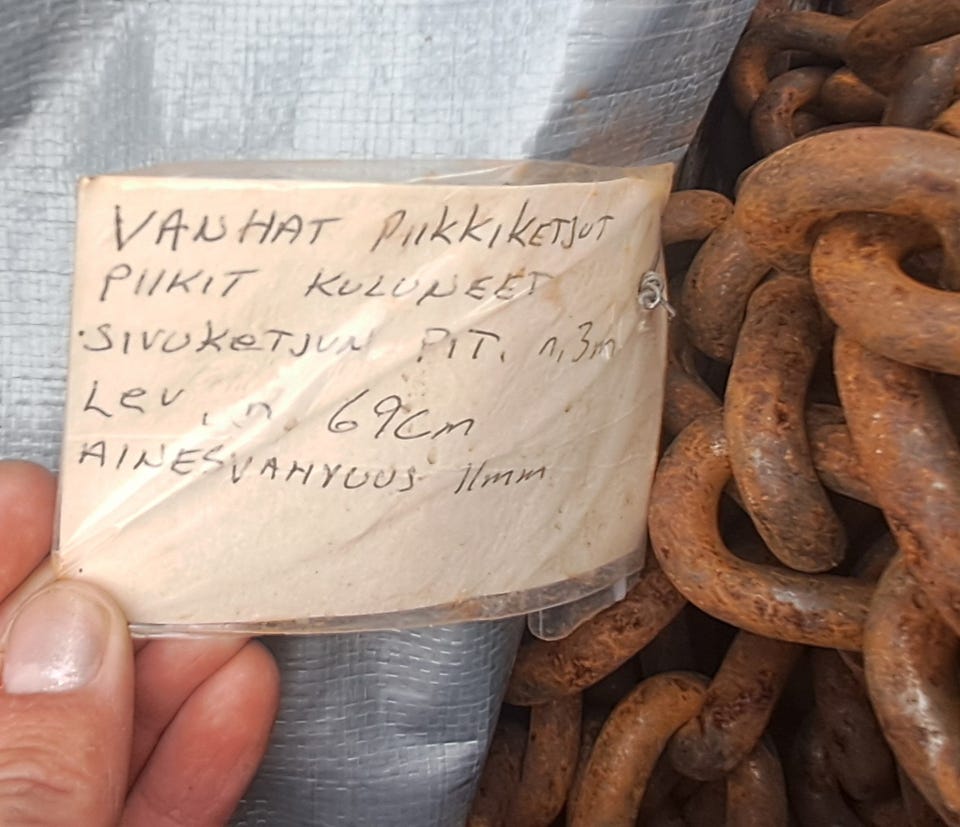 VANHAT PIIKKIKETJUT
PIIKIT KULUNEET
SIVUKETJUN PIT. n, 3m
LeV. n 69cm
AINESVAHVUUS 11mm